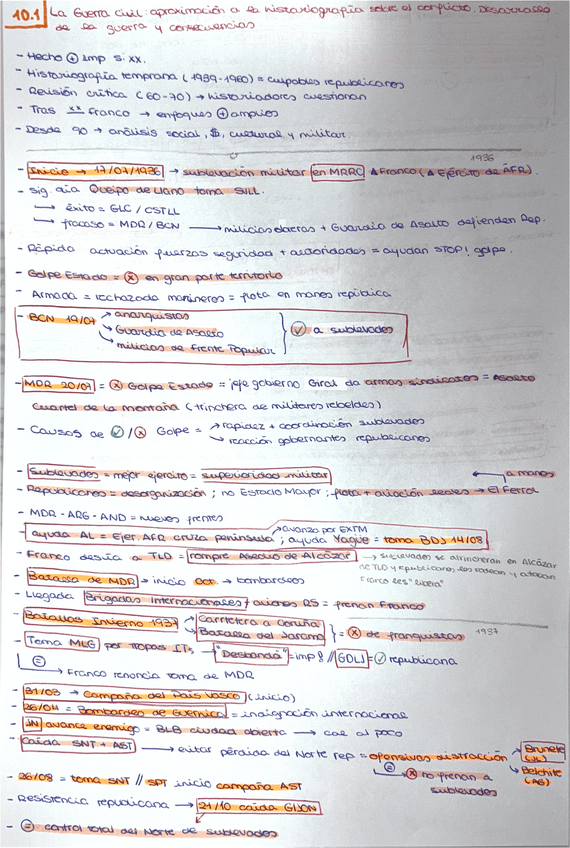 10.1 La Guerra Civil: aproximación a la historiografía sobre el conflicto. Desarrollo
de la guerra y consecuencias
- Hecho + imp s. XX.
- Historiografía temprana (1939-1960) = culpables republicanos
- Revisión crítica (60-70) → historiadores cuestionan
- Tras xx Franco → enfoques + amplios
- Desde 90 → análisis social, $, cultural y militar.
1936
- Inicio → 17/07/1936 → sublevación militar en MRRC Δ Franco (Δ Ejército de ÁFR).
- Sig. día Queipo de Llano toma SILL.
→ éxito = GLC / CSTLL
→ fracaso = MDR / BCN → milicias obreras + Guardia de Asalto defienden Rep.
- Rápida actuación fuerzas seguridad + autoridades = ayudan STOP! golpe.
- Golpe Estado = X en gran parte territorio
- Armada = rechazada marineros = flota en manos república
- BCN 19/07 → anarquistas
→ Guardia de Asalto
→ milicias de Frente Popular
} ✓ a sublevados
- MDR 20/07 = X Golpe Estado = jefe gobierno Giral da armas sindicatos = Asalto
Cuartel de la Montaña (trinchera de militares rebeldes)
- Causas de ✓/X Golpe = → rapidez + coordinación sublevados
→ reacción gobernantes republicanos
- Sublevados = mejor ejército = superioridad militar
a manos
- Republicanos = desorganización; no Estado Mayor; flota + aviación leales → El Ferrol
- MDR - ARG - AND = nuevos frentes
→ avanza por EXTM
- ayuda AL = Ejer. AFR cruza península; ayuda Yagüe = toma BDJ 14/08
- Franco desvía a TLD = rompre Asedio de Alcázar → sublevados se atrincheran en Alcázar
de TLD y republicanos los rodean y atacan
Franco les "libera"
- Batalla de MDR → inicio Oct → bombardeos
- Llegada Brigadas Internacionales + aviones RS = frenan Franco
- Batallas Invierno 1937 → Carretera a Coruña
→ Batalla del Jarama
} = X de franquistas 1937
- Toma MLG por tropas IT → "Desbandá" = imp 8 // GDLJ = ✓ republicana
→ Franco renuncia toma de MDR
- 31/03 → Campaña del País Vasco (inicio)
- 26/04 = Bombardeo de Guernica = indignación internacional
- JN avance enemigo = BLB ciudad abierta → cae al poco
- Caída SNT + AST → evitar pérdida del Norte rep = ofensivas distracción → Brunete
(JL)
→ Belchite
(AG)
→ X no frenan a
sublevados
- 26/08 = toma SNT // SPT inicio campaña AST
- Resistencia republicana → 21/10 caída GIJON
- = control total del Norte de sublevados